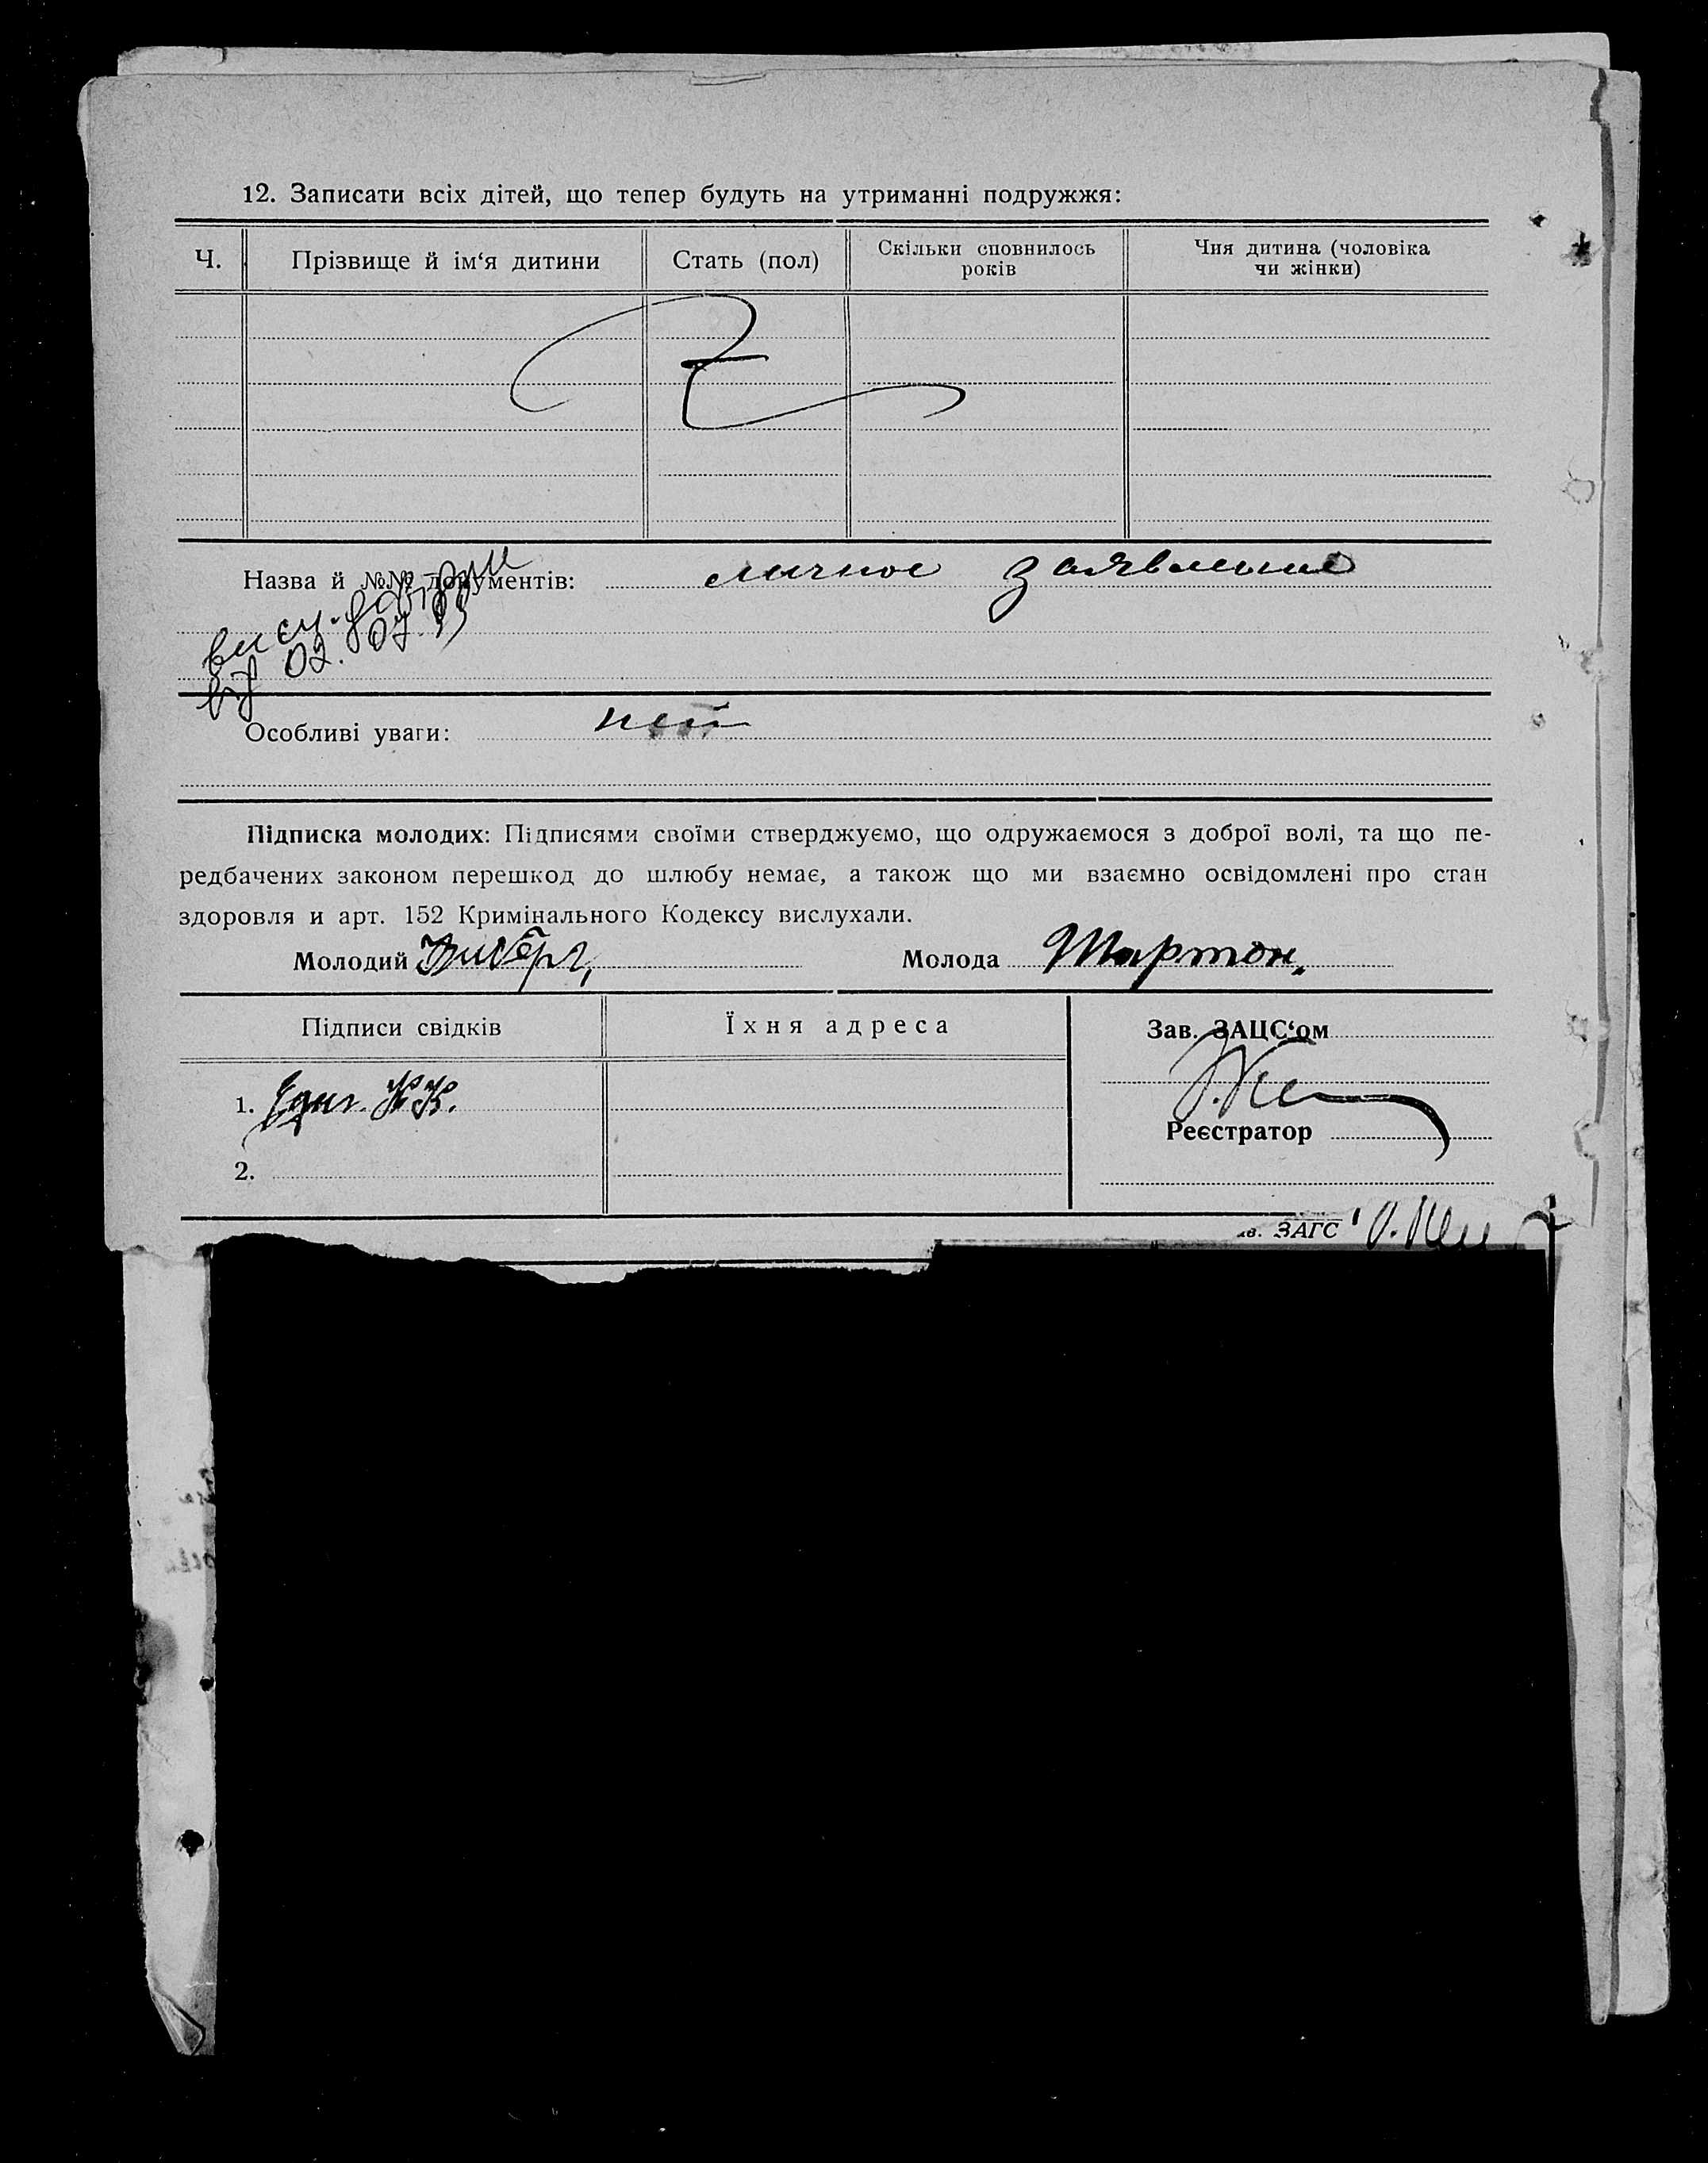 12. Записати всіх дітей, що тепер будуть на утриманні подружжя:
Ч.
Прізвище й ім‘я дитини
Стать (пол)
Скільки сповнилось
років
Чия дитина (чоловіка
чи жінки)
Назва й №№ документів: личное заявление
від 02. 07.
Особливі уваги: нет
Підписка молодих: Підписями своїми стверджуємо, що одружаємося з доброї волі, та що пе-
редбачених законом перешкод до шлюбу немає, а також що ми взаємно освідомлені про стан
здоровля и арт. 152 Кримінального Кодексу вислухали.
Молодий
Молода Шартон.
Підписи свідків
Їхня адреса
Зав. ЗАЦС‘ом
1.
Реєстратор
2.
ЗАГС